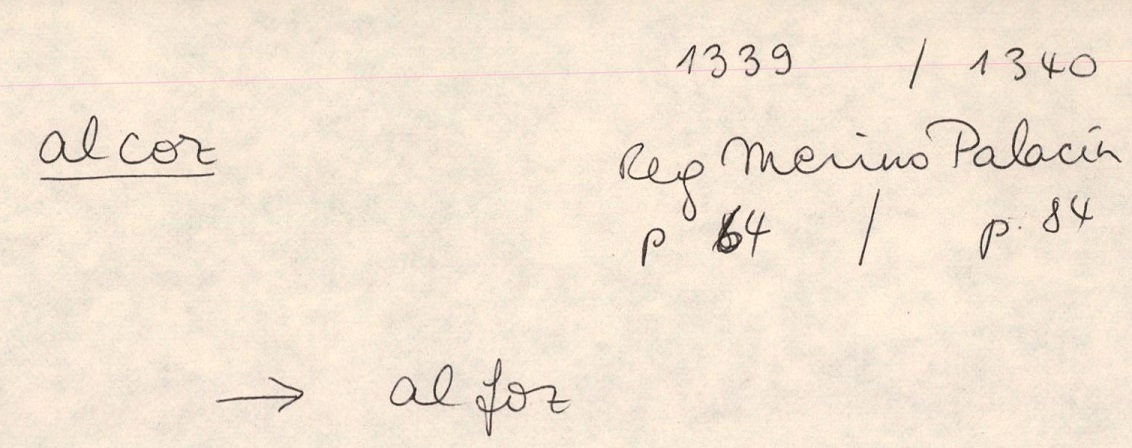 1339 / 1340
alcoz
Reg Merino Palacín
p 64 / p. 84
→ alfoz